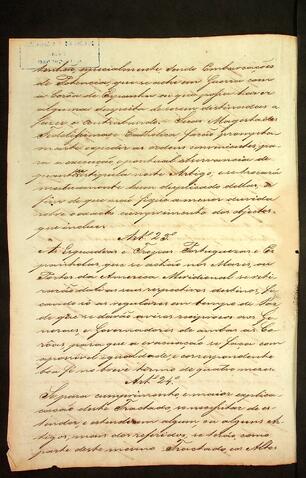 tandas, especialmente sendo Embarcações
de Potencia, que se ache em Guerra com
a Corôa de Espanha ou que possa haver
alguma suspeita de serem destinadas a
fazer o Contrabando. Suas Magestades
Fidelissima e Catholica farão prompta
mente expedir as ordens convinientes para
a execução e pontual observancia de
quanto se estipula neste Artigo; e se trocará
mutuamente huma duplicado dellas, a
fim de que não fique a menor duvida
sobre o exacto cumprimento dos objectos
que inclue.
Artº 23º
As Esquadras e Tropas Portuguezas e Es
panholas, que se achão nos Mares, ou
Portos da America Meridional se reti
rarão dalli aos seus respectivos destinos, fi
cando só as regulares em tempo de Paz
de que se darão avisos reciprocos aos Ge
neraes, e Governadores de ambas as Co
rôas, para que a evacuação se faça com
a possivel igualdade e correspondente
boa fé no breve termo de quatro mezes.
Artº 24º
Se para cumprimento, e maior explica
cação deste Tractado se necessitar de es
tender, e estender-se algum ou alguns Ar
tigos, mais dos referidos, se terão como
parte deste mesmo Tractado, as Altas